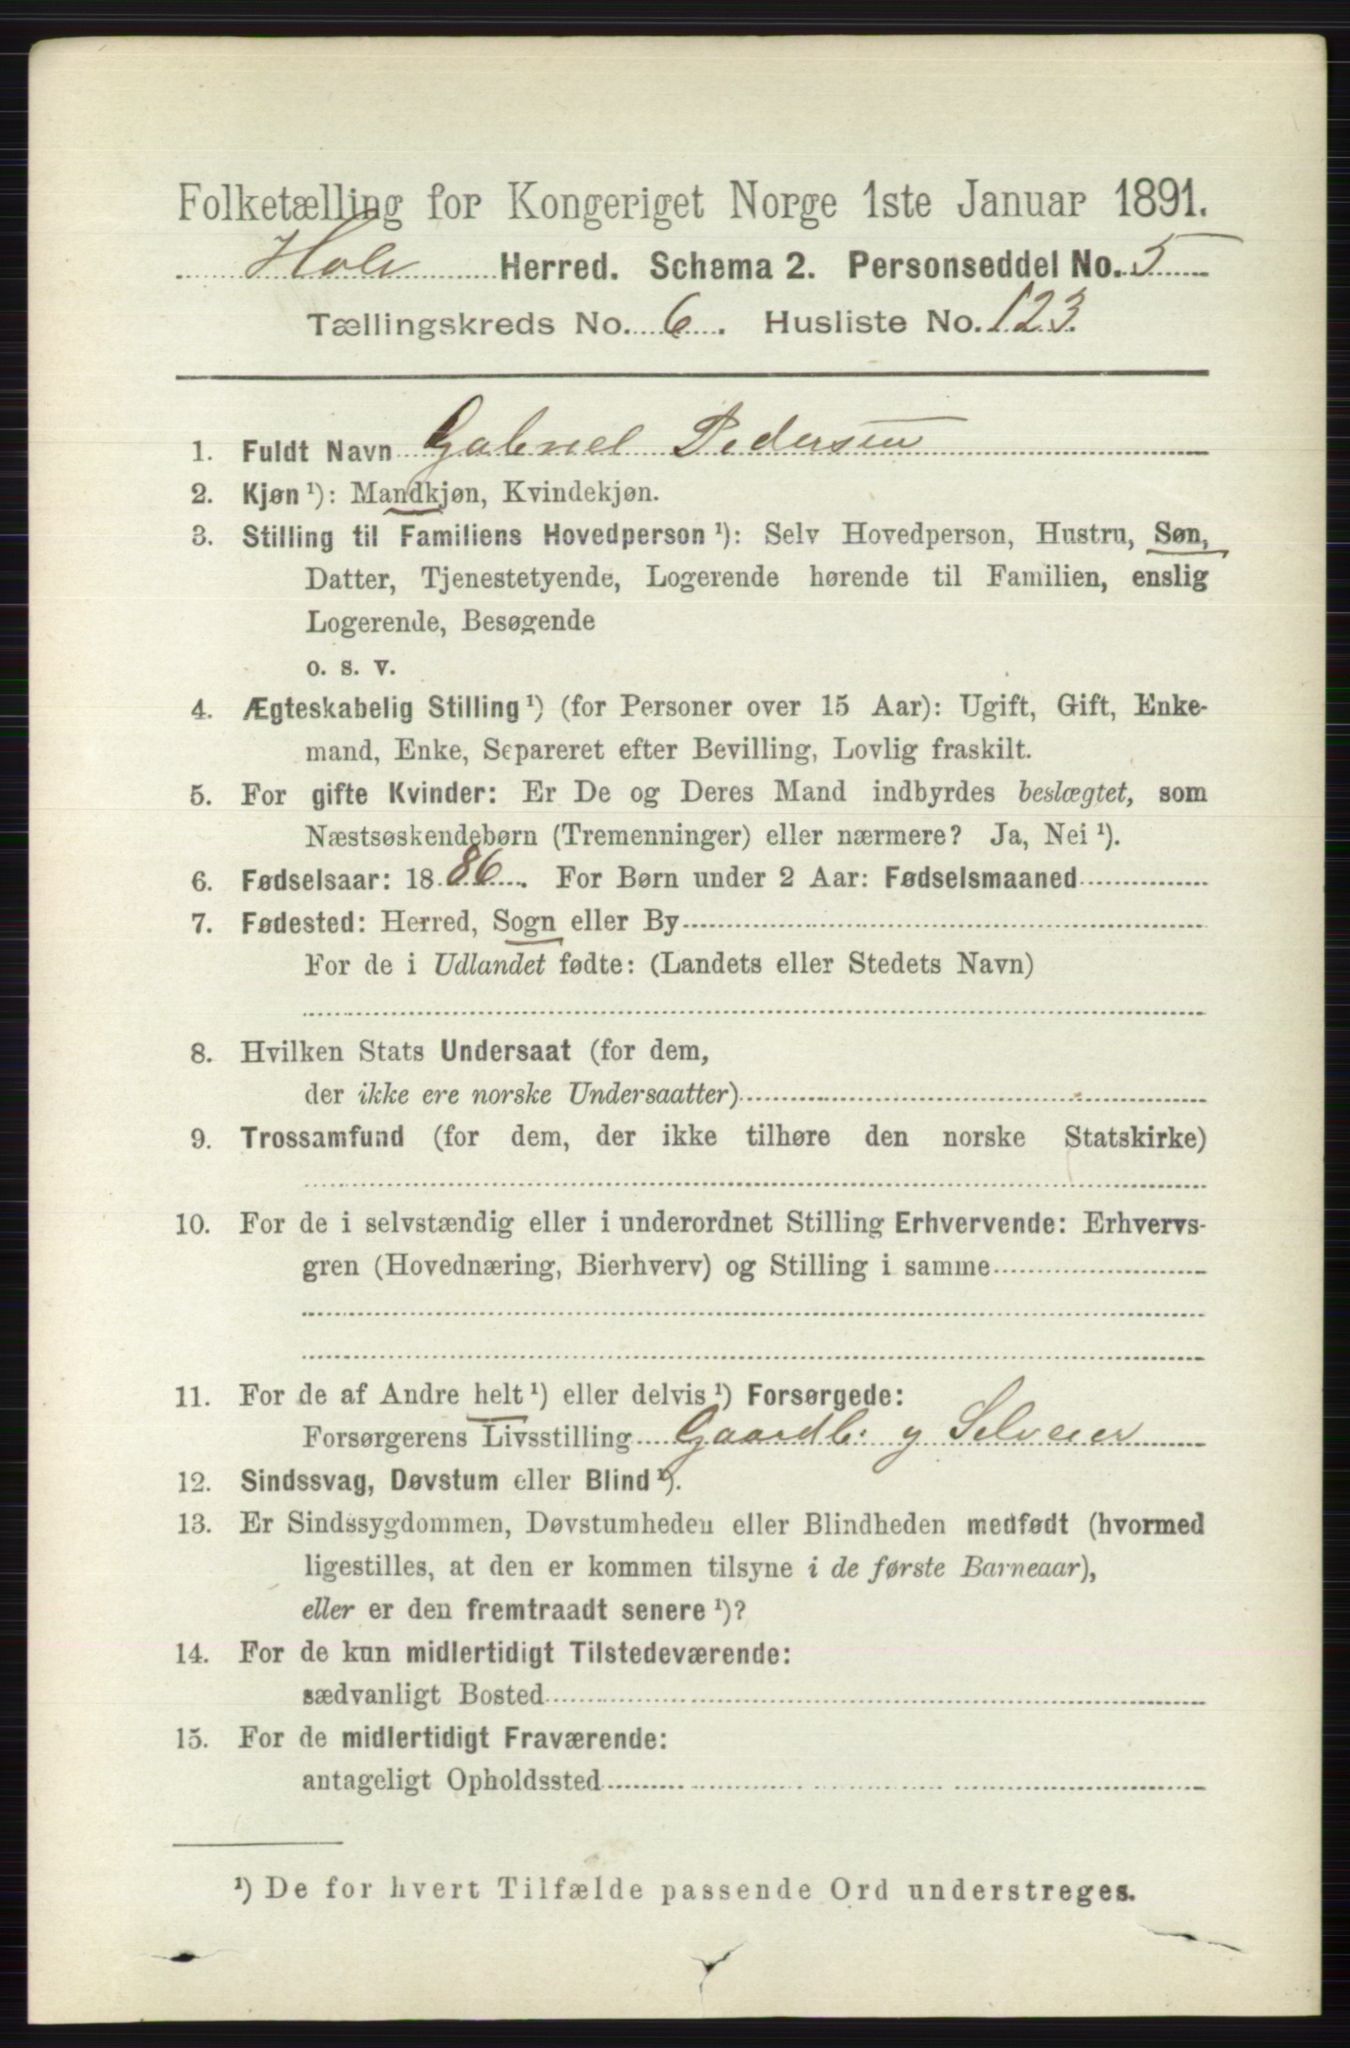 Folketælling for Kongeriget Norge 1ste Januar 1891.
Hole Herred. Schema 2. Personseddel No. 5
Tællingskreds No. 6. Husliste No. 123.
1. Fuldt Navn Gabriel Pedersen
2. Kjøn ¹): Mandkjøn, Kvindekjøn.
3. Stilling til Familiens Hovedperson ¹): Selv Hovedperson, Hustru, Søn,
Datter, Tjenestetyende, Logerende hørende til Familien, enslig
Logerende, Besøgende
o. s. v.
4. Ægteskabelig Stilling ¹) (for Personer over 15 Aar): Ugift, Gift, Enke-
mand, Enke, Separeret efter Bevilling, Lovlig fraskilt.
5. For gifte Kvinder: Er De og Deres Mand indbyrdes beslægtet, som
Næstsøskendebørn (Tremenninger) eller nærmere? Ja, Nei ¹).
6. Fødselsaar: 1886. For Børn under 2 Aar: Fødselsmaaned
7. Fødested: Herred, Sogn eller By
For de i Udlandet fødte: (Landets eller Stedets Navn)
8. Hvilken Stats Undersaat (for dem,
der ikke ere norske Undersaatter)
9. Trossamfund (for dem, der ikke tilhøre den norske Statskirke)
10. For de i selvstændig eller i underordnet Stilling Erhvervende: Erhvervs-
gren (Hovednæring, Bierhverv) og Stilling i samme
11. For de af Andre helt ¹) eller delvis ¹) Forsørgede:
Forsørgerens Livsstilling Gaardb: og Selveier
12. Sindssvag, Døvstum eller Blind ¹).
13. Er Sindssygdommen, Døvstumheden eller Blindheden medfødt (hvormed
ligestilles, at den er kommen tilsyne i de første Barneaar),
eller er den fremtraadt senere ¹)?
14. For de kun midlertidigt Tilstedeværende:
sædvanligt Bosted
15. For de midlertidigt Fraværende:
antageligt Opholdssted
¹) De for hvert Tilfælde passende Ord understreges.